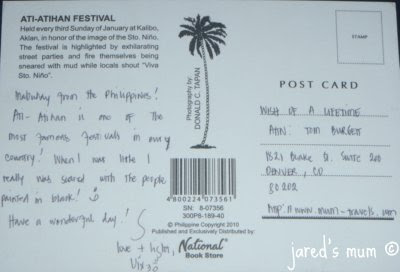 ATI-ATIHAN FESTIVAL
Held every third Sunday of January at Kalibo,
Aklan, in honor of the image of the Sto. Niño.
The festival is highlighted by exhilarating
street parties and fire themselves being
sneared with mud while locals shout "Viva
Sto. Niño".
Mabuhay from the Philippines!
Ati-Atihan is one of the
most famous festivals in my
country. When I was little I
really was scared with the people
painted in black!
Have a wonderful day!
love +
Vix
Photography by:
DONALD C. TAPAN
4 800224 073561
SN: 8-07356
300P8-189-40
© Philippine Copyright 2010
Published and Exclusively Distributed by:
National
Book Store
STAMP
POST CARD
WISH OF A LIFETIME
ATTN: TOM BURGET
1821 Blake St. SUITE 200
DENVER, CO
80202
http://www.mum-travels.com
jared's mum ©